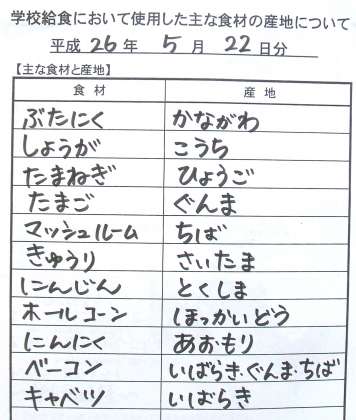 学校給食において使用した主な食材の産地について
平成 26 年 5 月 22 日分
【主な食材と産地】
食材 産地
ぶたにく かながわ
しょうが こうち
たまねぎ ひょうご
たまご ぐんま
マッシュルーム ちば
きゅうり さいたま
にんじん とくしま
ホールコーン ほっかいどう
にんにく あおもり
ベーコン いばらき・ぐんま・ちば
キャベツ いばらき